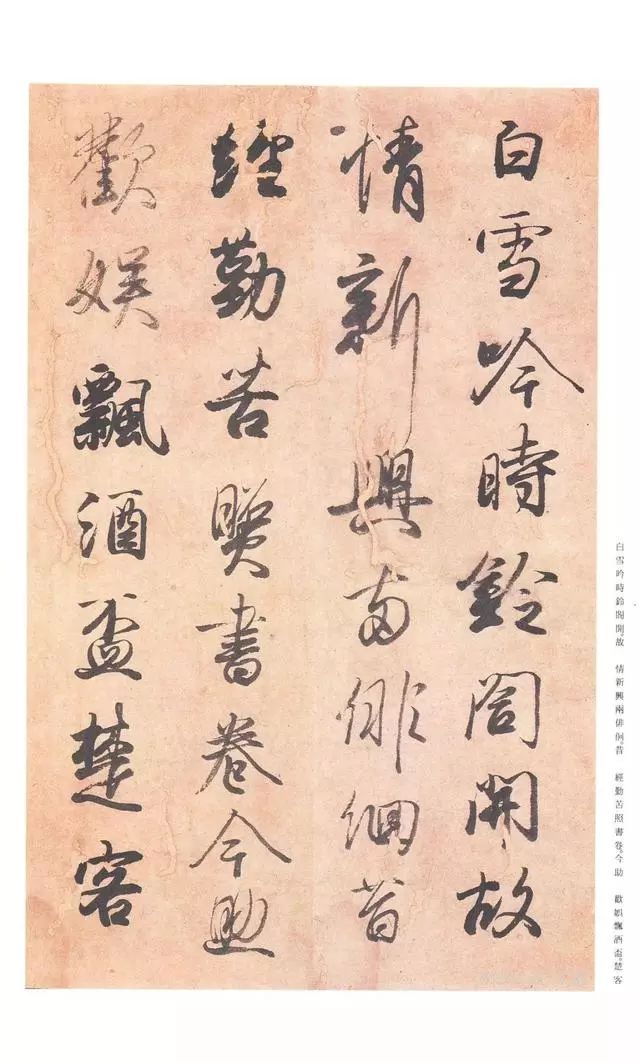 白雪吟時鈴閤開故
情新興兩俳佪昔
經勤苦照書卷今助
歡娛飄酒盃楚客
白雪吟時鈴閤開。故 情新興兩俳佪。昔 經勤苦照書卷。今助 歡娛飄酒盃。楚客